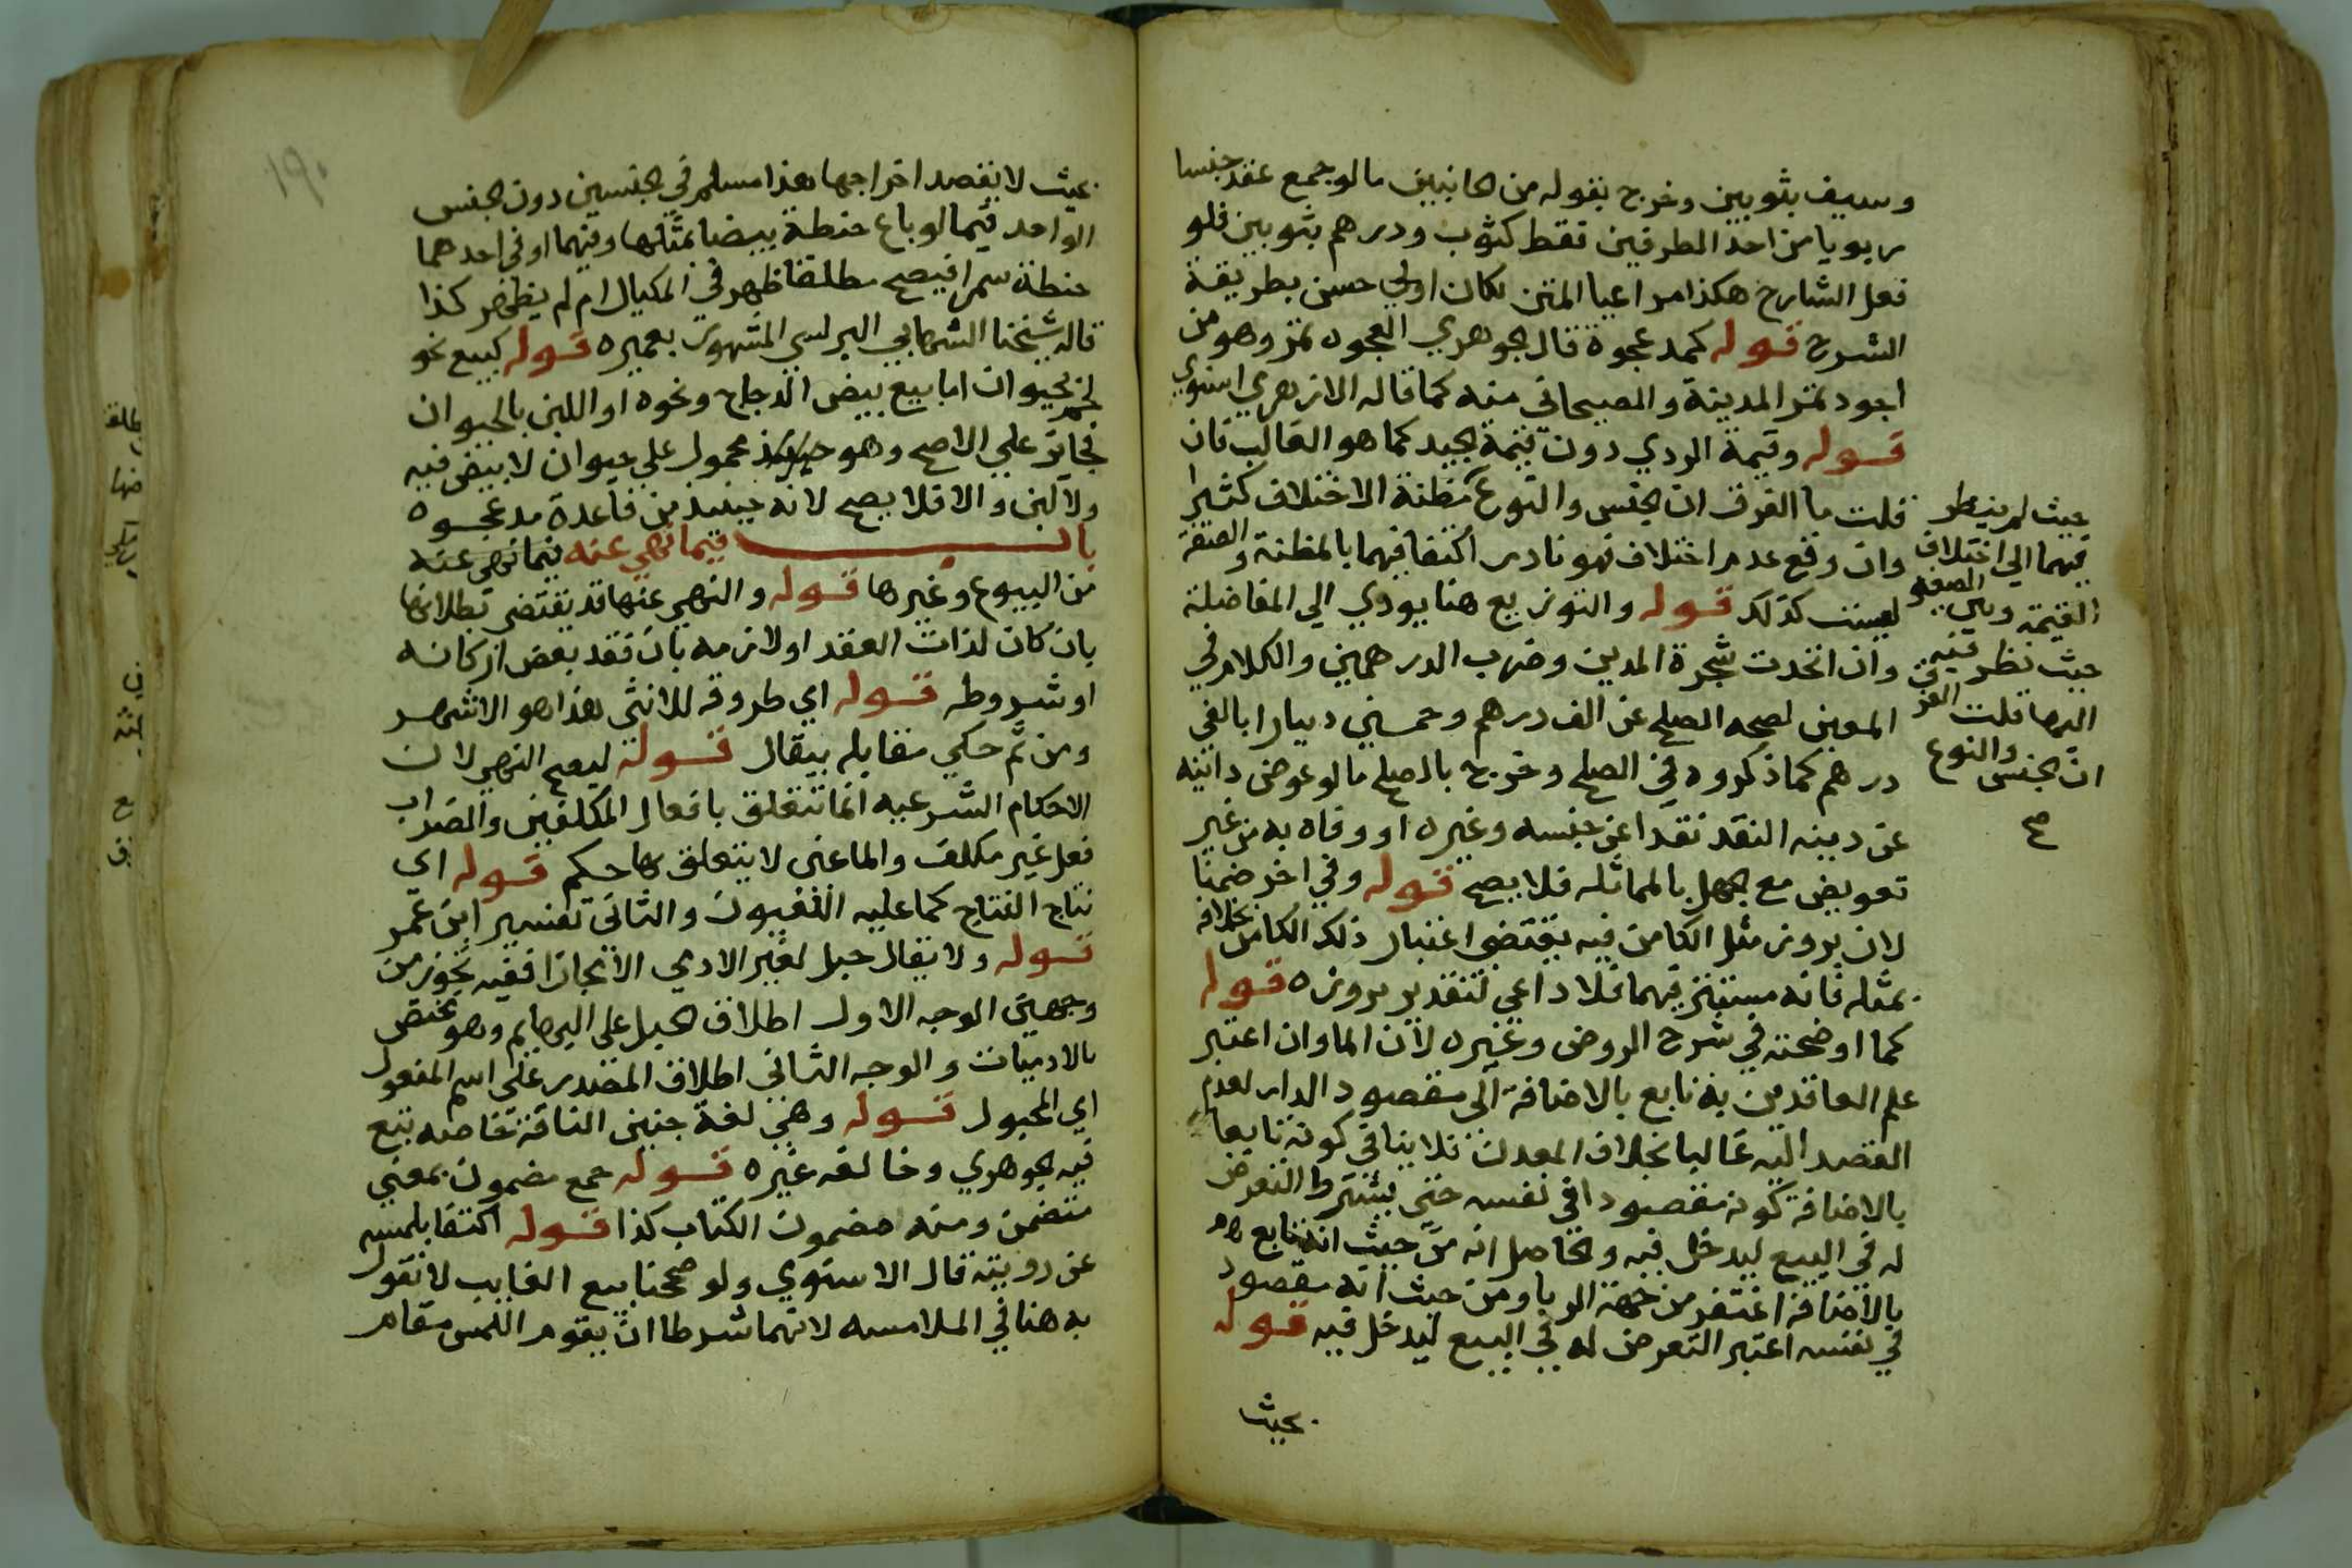 وسيف بثوبين وخرج بقوله من الجانبين ما لو جمع عقد جنسا
ربويا من احد الطرفين فقط كثوب ودرهم بثوبين فلو
فعل الشارح هكذا مراعيا المتن لكان اولي حسن بطريقة
الشرح قوله كمد عجوة قال الجوهري العجوه تمر وهو من
اجود تمر المدينة والصيحاني منه كما قاله الازهري اسنوي
قوله وقيمة الردي دون قيمة الجيد كما هو الغالب فان
قلت ما الفرق ان الجنس والنوع مظنة الاختلاف كثيرا
وان وقع عدم اختلاف فهو نادر اكتفا فيهما بالمظنة والصفة
ليست كذلك قوله والتوزيع هنا يودي الي المفاضلة
وان اتحدت شجرة المدين وضرب الدرهمين والكلام في
المعين لصحه الصلح عن الف درهم وخمسين دينارا بالفي
درهم كما ذكروه في الصلح وخرج بالصلح ما لو عوض داينه
عن دينه النقد نقدا عن جنسه وغيره او وفاه به من غير
تعويض مع الجهل بالمماثله فلا يصح قوله وفي اخر ضمنا
لان بروز مثل الكامن فيه يقتضي اعتبار ذلك الكامن بخلافه
بمثله فانه مستتر فيهما فلا داعي لتقدير بروزه قوله
كما اوضحته في شرح الروض وغيره لان الما وان اعتبر
علم العاقدين به تابع بالاضافة الي مقصود الدار لعدم
القصد اليه غالبا بخلاف المعدن فلا ينافي كونه تابعا
بالاضافة كونه مقصودا في نفسه حتي يشترط التعرض
له في البيع ليدخل فيه والحاصل انه من حيث انه تابع
بالاضافة اغتفر من جهة الربا ومن حيث انه مقصود
في نفسه اعتبر التعرض له في البيع ليدخل فيه قوله
بحيث
حيث لم ينظر
فيهما الي اختلاف
القيمة وبين الصفه
حيث نظر فيه
اليها قلت الفرق
ان الجنس والنوع
صح
١٩٠
بحيث لا يقصد اخراجها هذا مسلم في الجنسين دون الجنس
الواحد فيما لو باع حنطة بيضا بمثلها وفيهما او في احدهما
حنطة سمرا فيصح مطلقا ظهر في المكيال ام لم يظهر كذا
قاله شيخنا الشهابي البرلسي المشهور بعميره قوله كبيع نحو
لحم بحيوان اما بيع بيض الدجاج ونحوه او اللبن بالحيوان
فجايز علي الاصح وهو حينيذ محمول علي حيوان لا بيض فيه
ولا لبن والا فلا يصح لانه حينيذ من قاعدة مد عجوه
باب فيما نهي عنه فيما نهي عنه
من البيوع وغيرها قوله والنهي عنها قد يقتضي بطلانها
بان كان لذات العقد او لازمه بان فقد بعض اركانه
او شروطه قوله اي طروقه للانثي هذا هو الاشهر
ومن ثم حكي مقابله بيقال قوله ليصح النهي لان
الاحكام الشرعيه انما تتعلق بافعال المكلفين والضراب
فعل غير مكلف والما عين لا يتعلق بها حكم قوله اي
نتاج النتاج كما عليه اللغويون والثاني تفسير ابن عمر
قوله ولا يقال حبل لغير الادمي الا مجازا ففيه تجوز من
وجهين الوجه الاول اطلاق الحبل علي البهايم وهو مختص
بالادميات والوجه الثاني اطلاق المصدر علي اسم المفعول
اي المحبول قوله وهي لغة جنين الناقة خاصه تبع
فيه الجوهري وخالفه غيره قوله جمع مضمون بمعني
متضمن ومنه مضمون الكتاب كذا قوله اكتفا بلمسه
عن رويته قال الاسنوي ولو صححنا بيع الغايب لا نقول
به هنا في الملامسه لانهما شرطا ان يقوم اللمس مقام